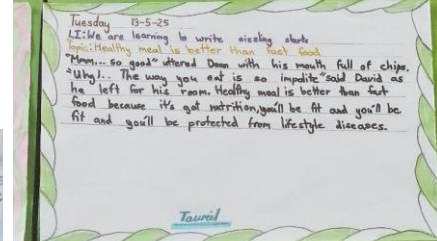 Tuesday 13-5-25
LI: We are learning to write sizzling starts
Topic: Healthy meal is better than fast food
"Mmm... so good" uttered Dean with his mouth full of chips.
"Uhg!.. The way you eat is so impolite" said David as
he left for his room. Healthy meal is better than fast
food because it's got nutrition, you'll be fit and you'll be
fit and you'll be protected from lifestyle diseases.